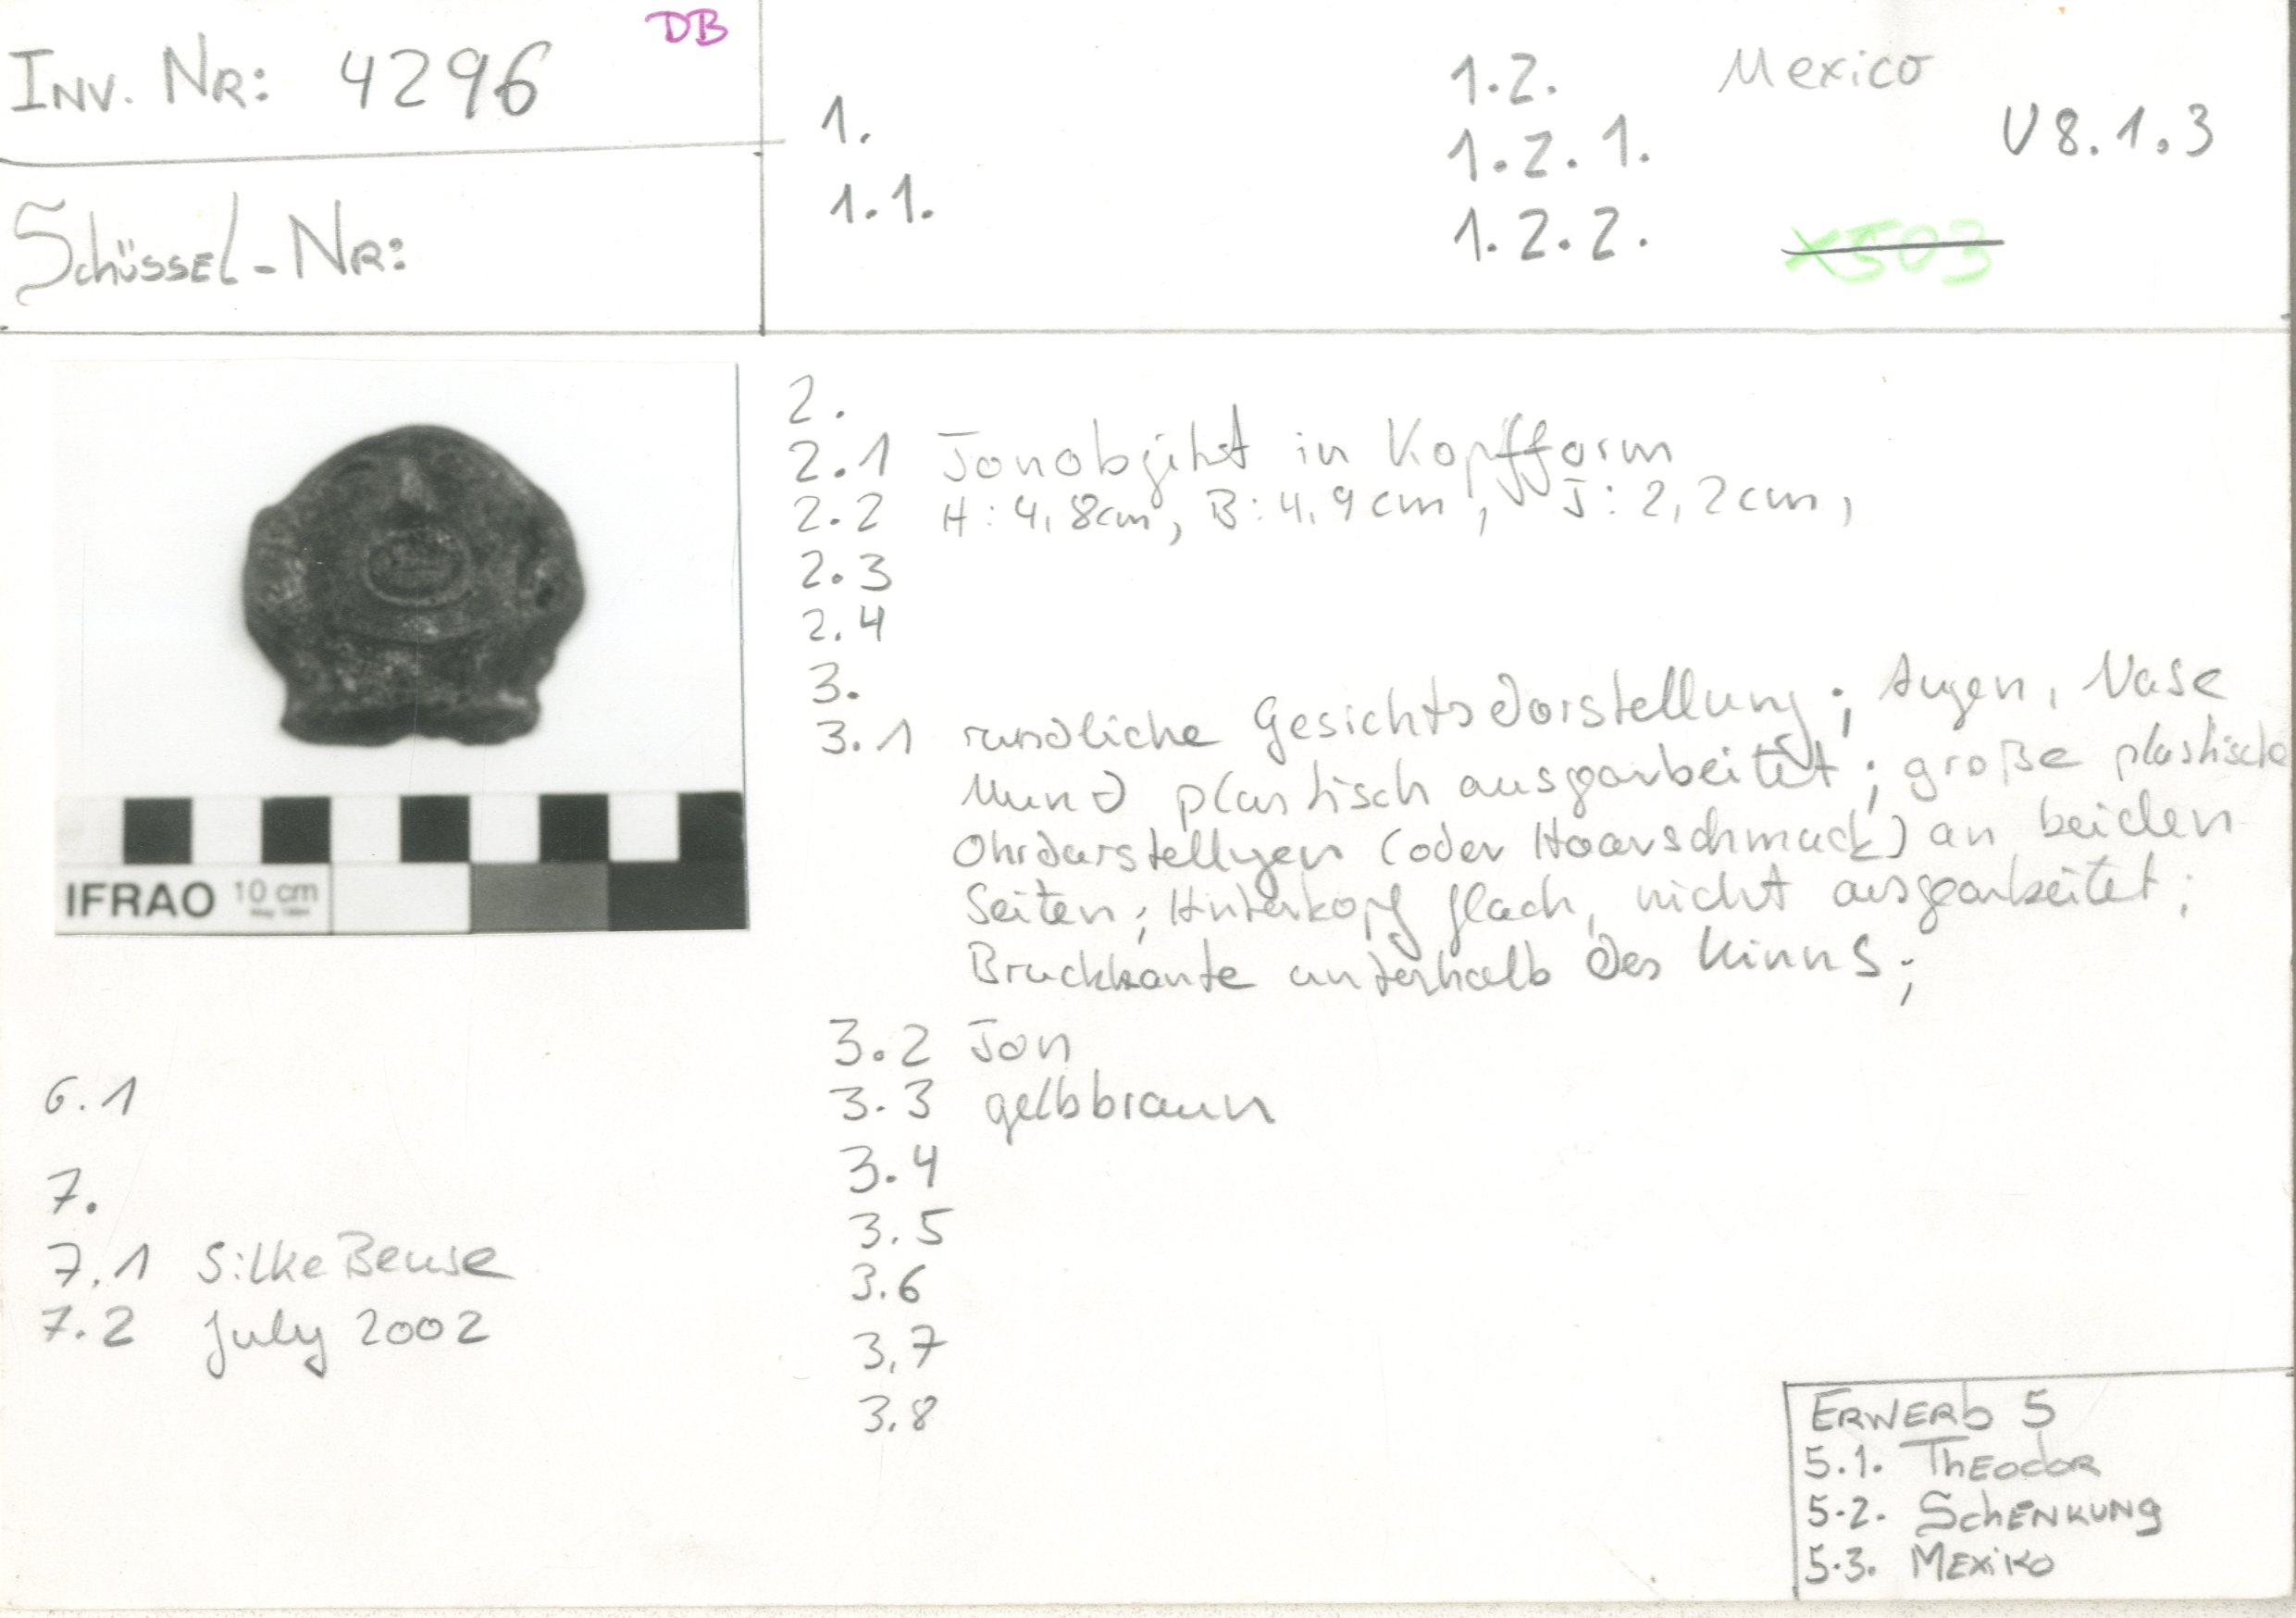 DB
Inv. Nr: 4296
Schüssel-Nr:
1.
1.1.
1.2. Mexico
1.2.1. V8.1.3
1.2.2. X503
2.
2.1 Tonobjekt in Kopfform
2.2 H: 4,8cm, B: 4,9cm, T: 2,2cm,
2.3
2.4
3.
3.1 rundliche Gesichtsdarstellung; Augen, Nase
Mund plastisch ausgearbeitet; große plastische
Ohrdarstellgen (oder Haarschmuck) an beiden
Seiten; Hinterkopf flach, nicht ausgearbeitet;
Bruckkante unterhalb des Kinns;
3.2 Ton
3.3 gelbbraun
3.4
3.5
3.6
3,7
3.8
IFRAO 10 cm
6.1
7.
7.1 Silke Beuse
7.2 July 2002
Erwerb 5
5.1. Theodor
5.2. Schenkung
5.3. Mexiko